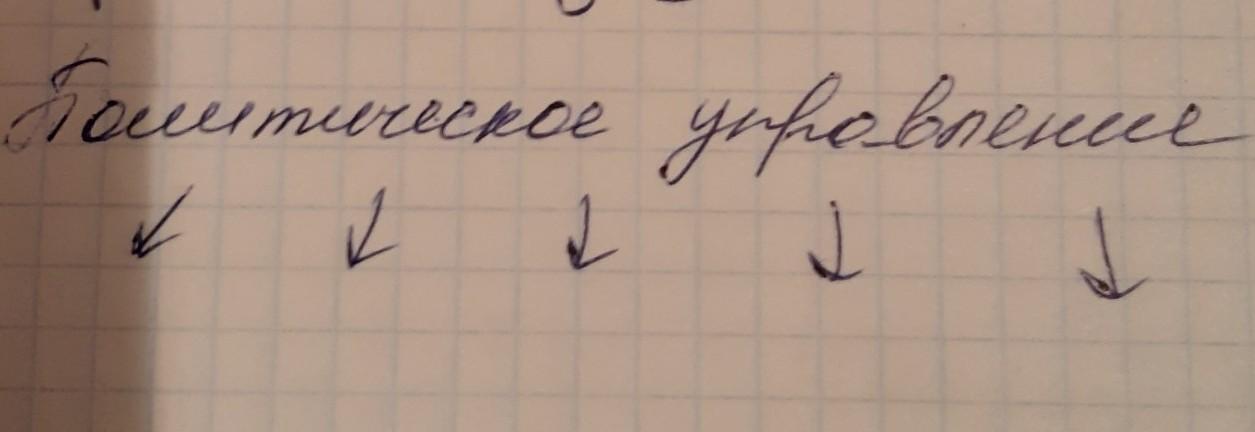 Политическое управление